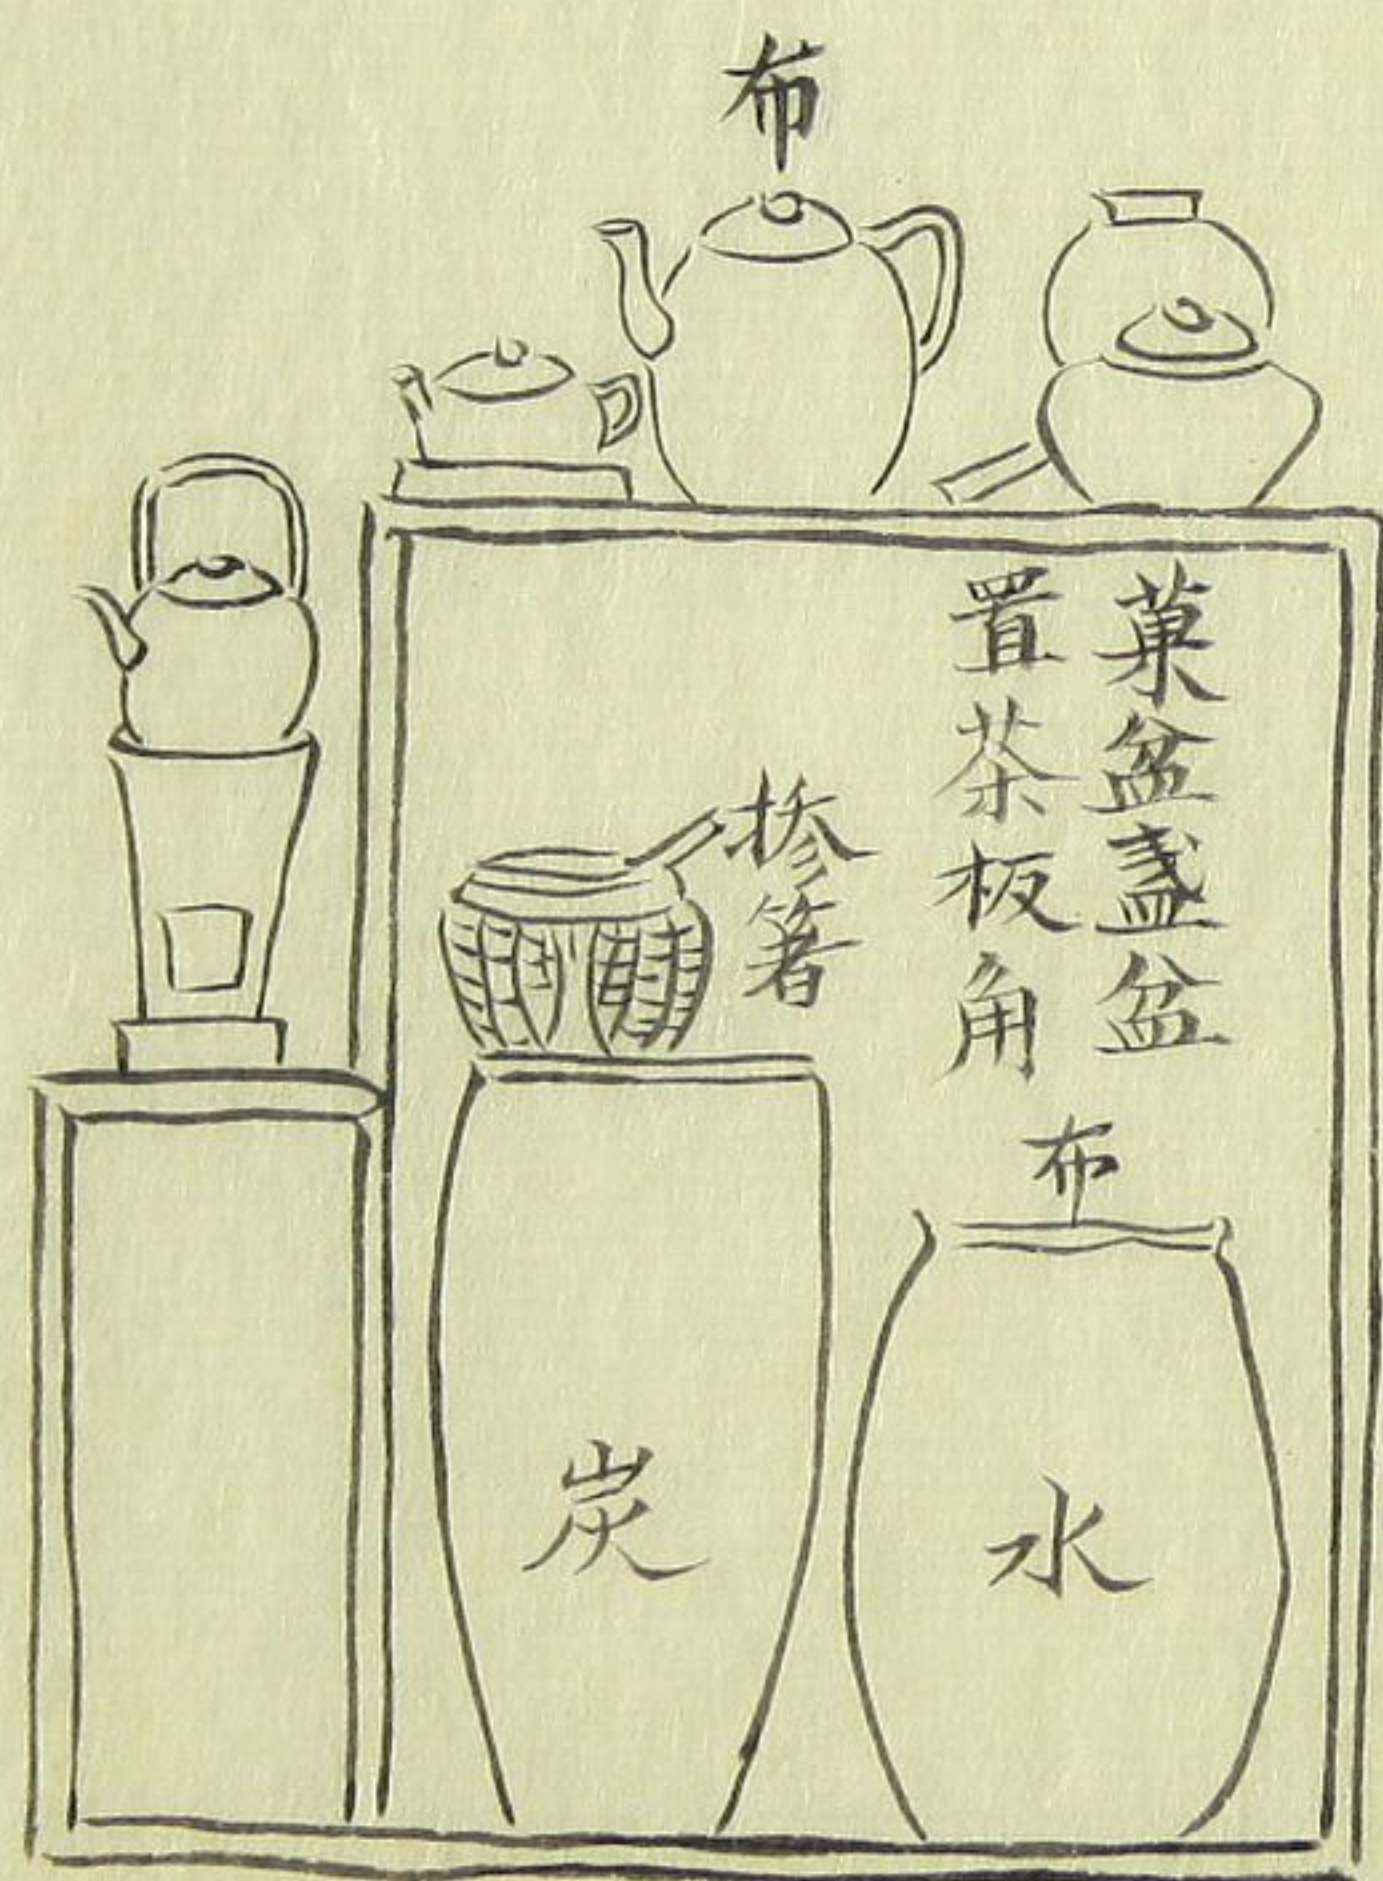 布
菓盆盞盆
置茶板角
掺箸
布
炭
水